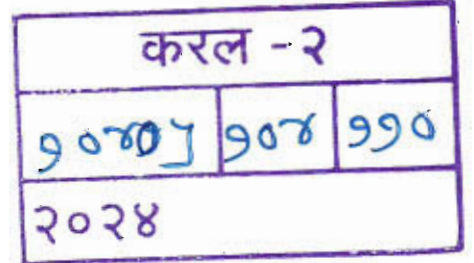 करल - २
१०४०५ १०४ ११०
२०२४